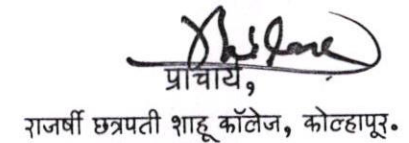 प्राचार्य,
राजर्षी छत्रपती शाहू कॉलेज, कोल्हापूर.